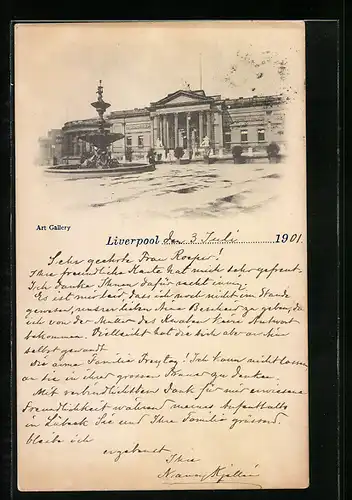 Art Gallery
Liverpool den 3 Juli 1901.
Sehr geehrte Frau Roeper!
Ihre freundliche Karte hat mich sehr gefreut.
Ich danke Ihnen dafür recht innig.
Es ist mir leid, dass ich noch nicht im Stande
gewesen, unsres lieben Bescheid zu geben, da
ich von der Mutter des keine Antwort
bekommen. Vielleicht hat die sich aber an Ihn
selbst gewandt.
Die arme Familie Freytag! Ich kann nicht lassen
an Sie in ihrer grossen Trauer zu denken.
Mit verbindlichstem Dank für mir erwiesene
Freundlichkeit während meines Aufenthalts
in Lübeck Sie und Ihre Familie grüssend
bleibe ich
ergebenst
Ihre
Nancy